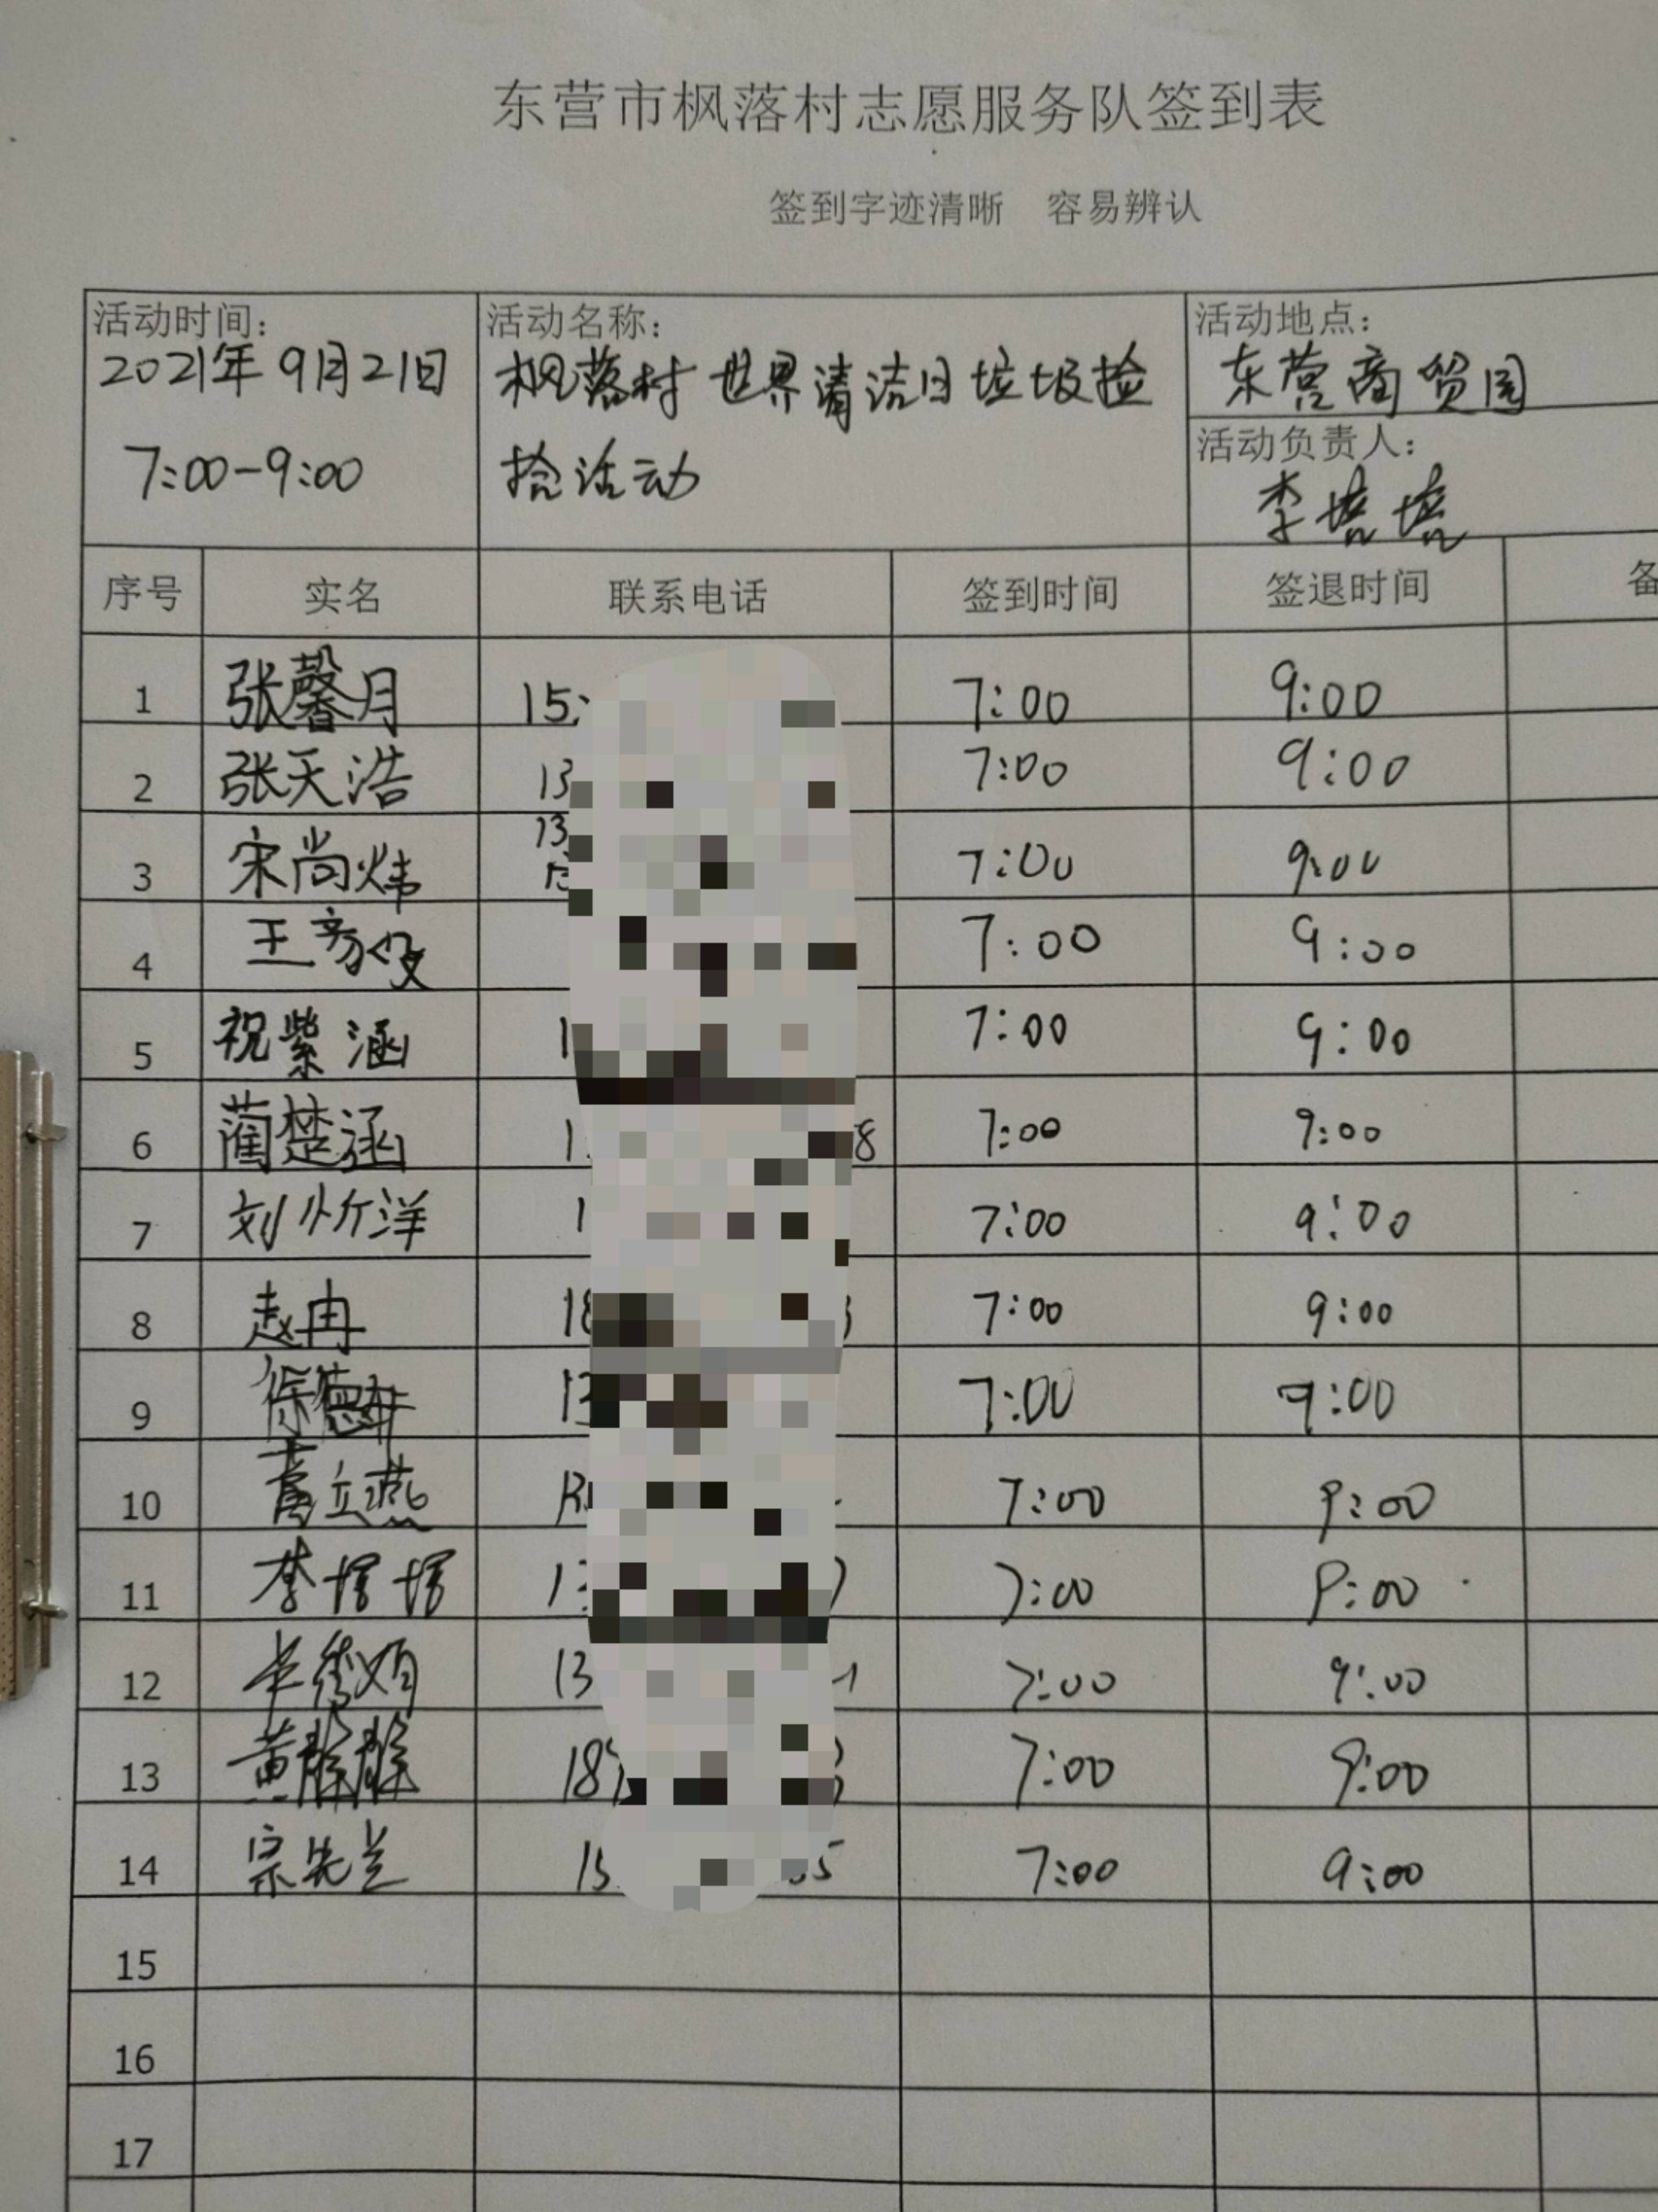 东营市枫落村志愿服务队签到表
签到字迹清晰 容易辨认
活动时间: 活动名称: 活动地点:
2021年9月21日 枫落村世界清洁日垃圾捡 东营商贸园
活动负责人:
7:00-9:00 拾活动 李培培
序号 实名 联系电话 签到时间 签退时间 备
1 张馨月 15 7:00 9:00
2 张天浩 13 7:00 9:00
3 宋尚炜 13 7:00 9:00
4 王 7:00 9:00
5 祝紫涵 1 7:00 9:00
6 蔺楚涵 1 8 7:00 9:00
7 刘炘洋 1 7:00 9:00
8 赵冉 18 7:00 9:00
9 徐德 13 7:00 9:00
10 葛立燕 7:00 9:00
11 李培培 13 7:00 9:00
12 13 7:00 9:00
13 黄 18 7:00 9:00
14 宗先兰 15 5 7:00 9:00
15
16
17